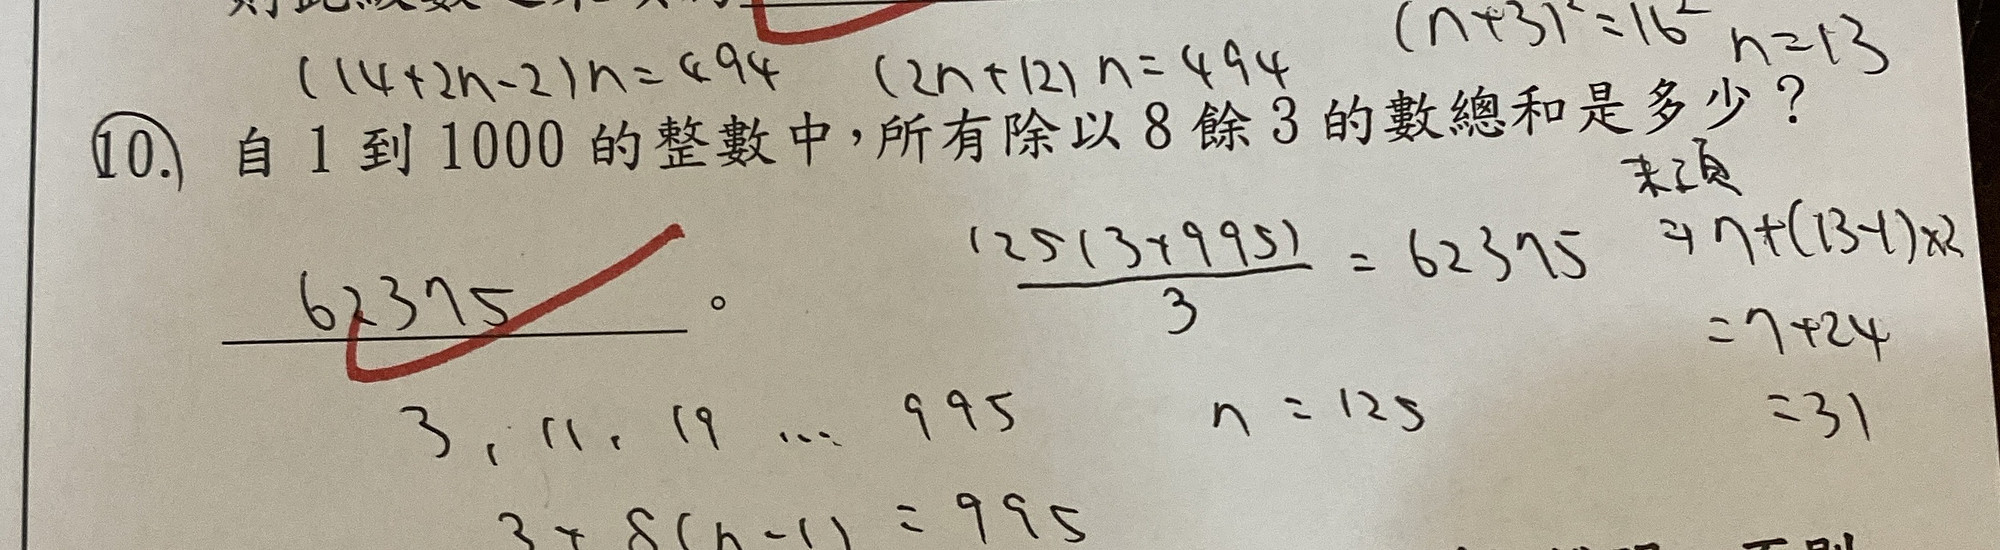 (14+2n-2)n=494 (2n+12)n=494 (n+3)²=16² n=13
10. 自 1 到 1000 的整數中，所有除以 8 餘 3 的數總和是多少？
末項
62375 。
125(3+995)/3 = 62375
⇒ 7+(13-1)×2
=7+24
=31
3, 11, 19 ... 995
n = 125
3+8(n-1) = 995